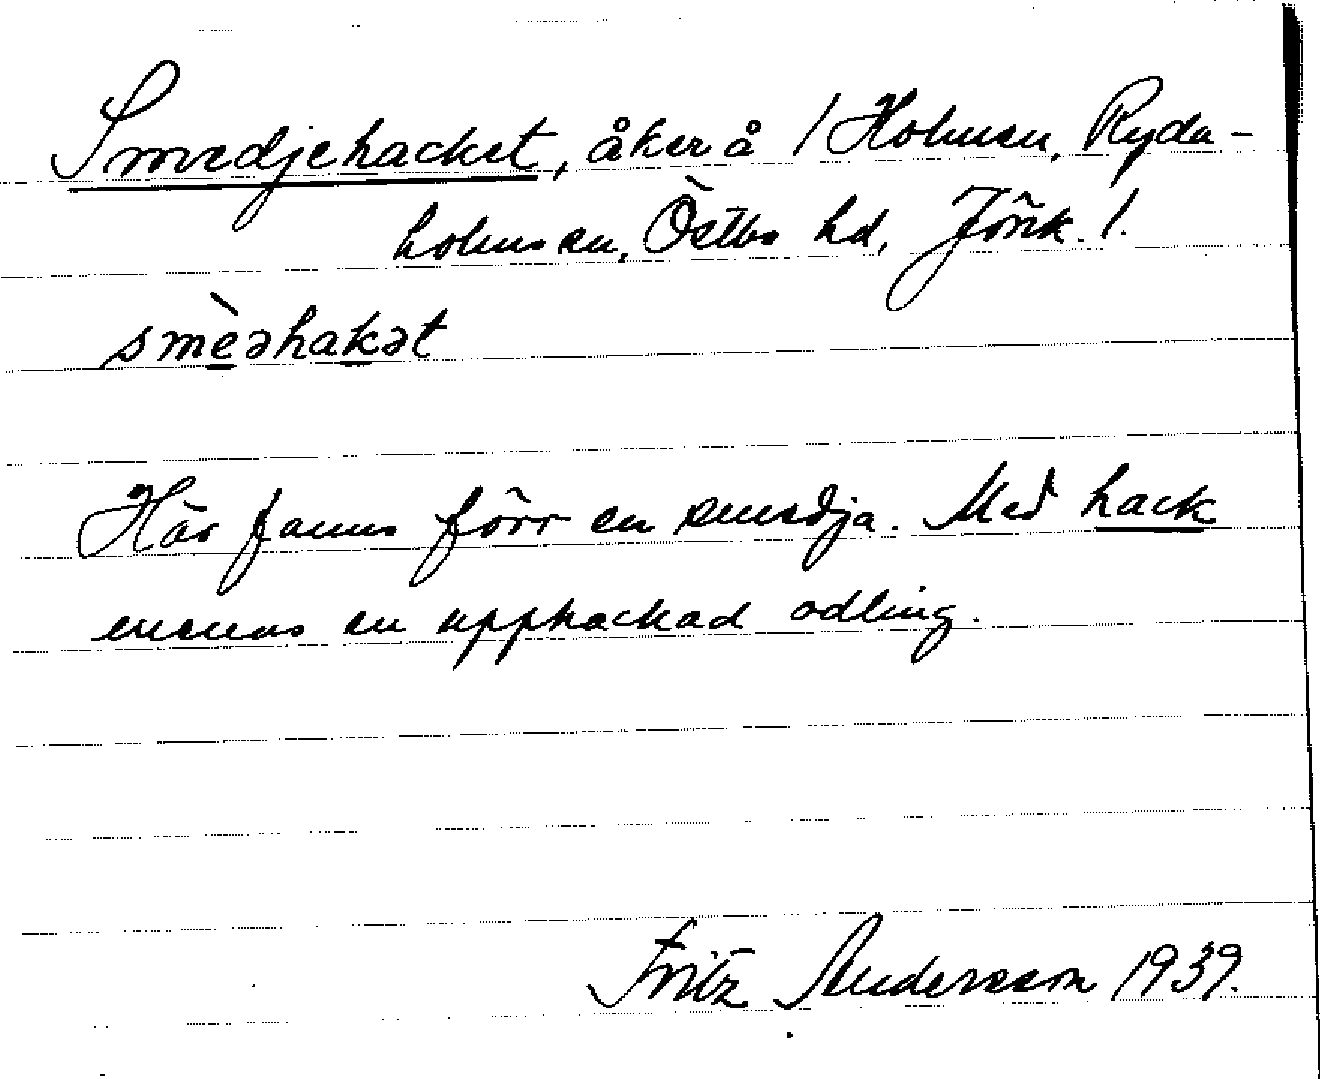 Smedjehacket, åker å 1 Holmen, Ryda-
holms sn, Östbo hd, Jönk. l.
smèəhakət
Här fanns förr en smedja. Med hack
menas en upphackad odling.
Fritz Andersson 1939.